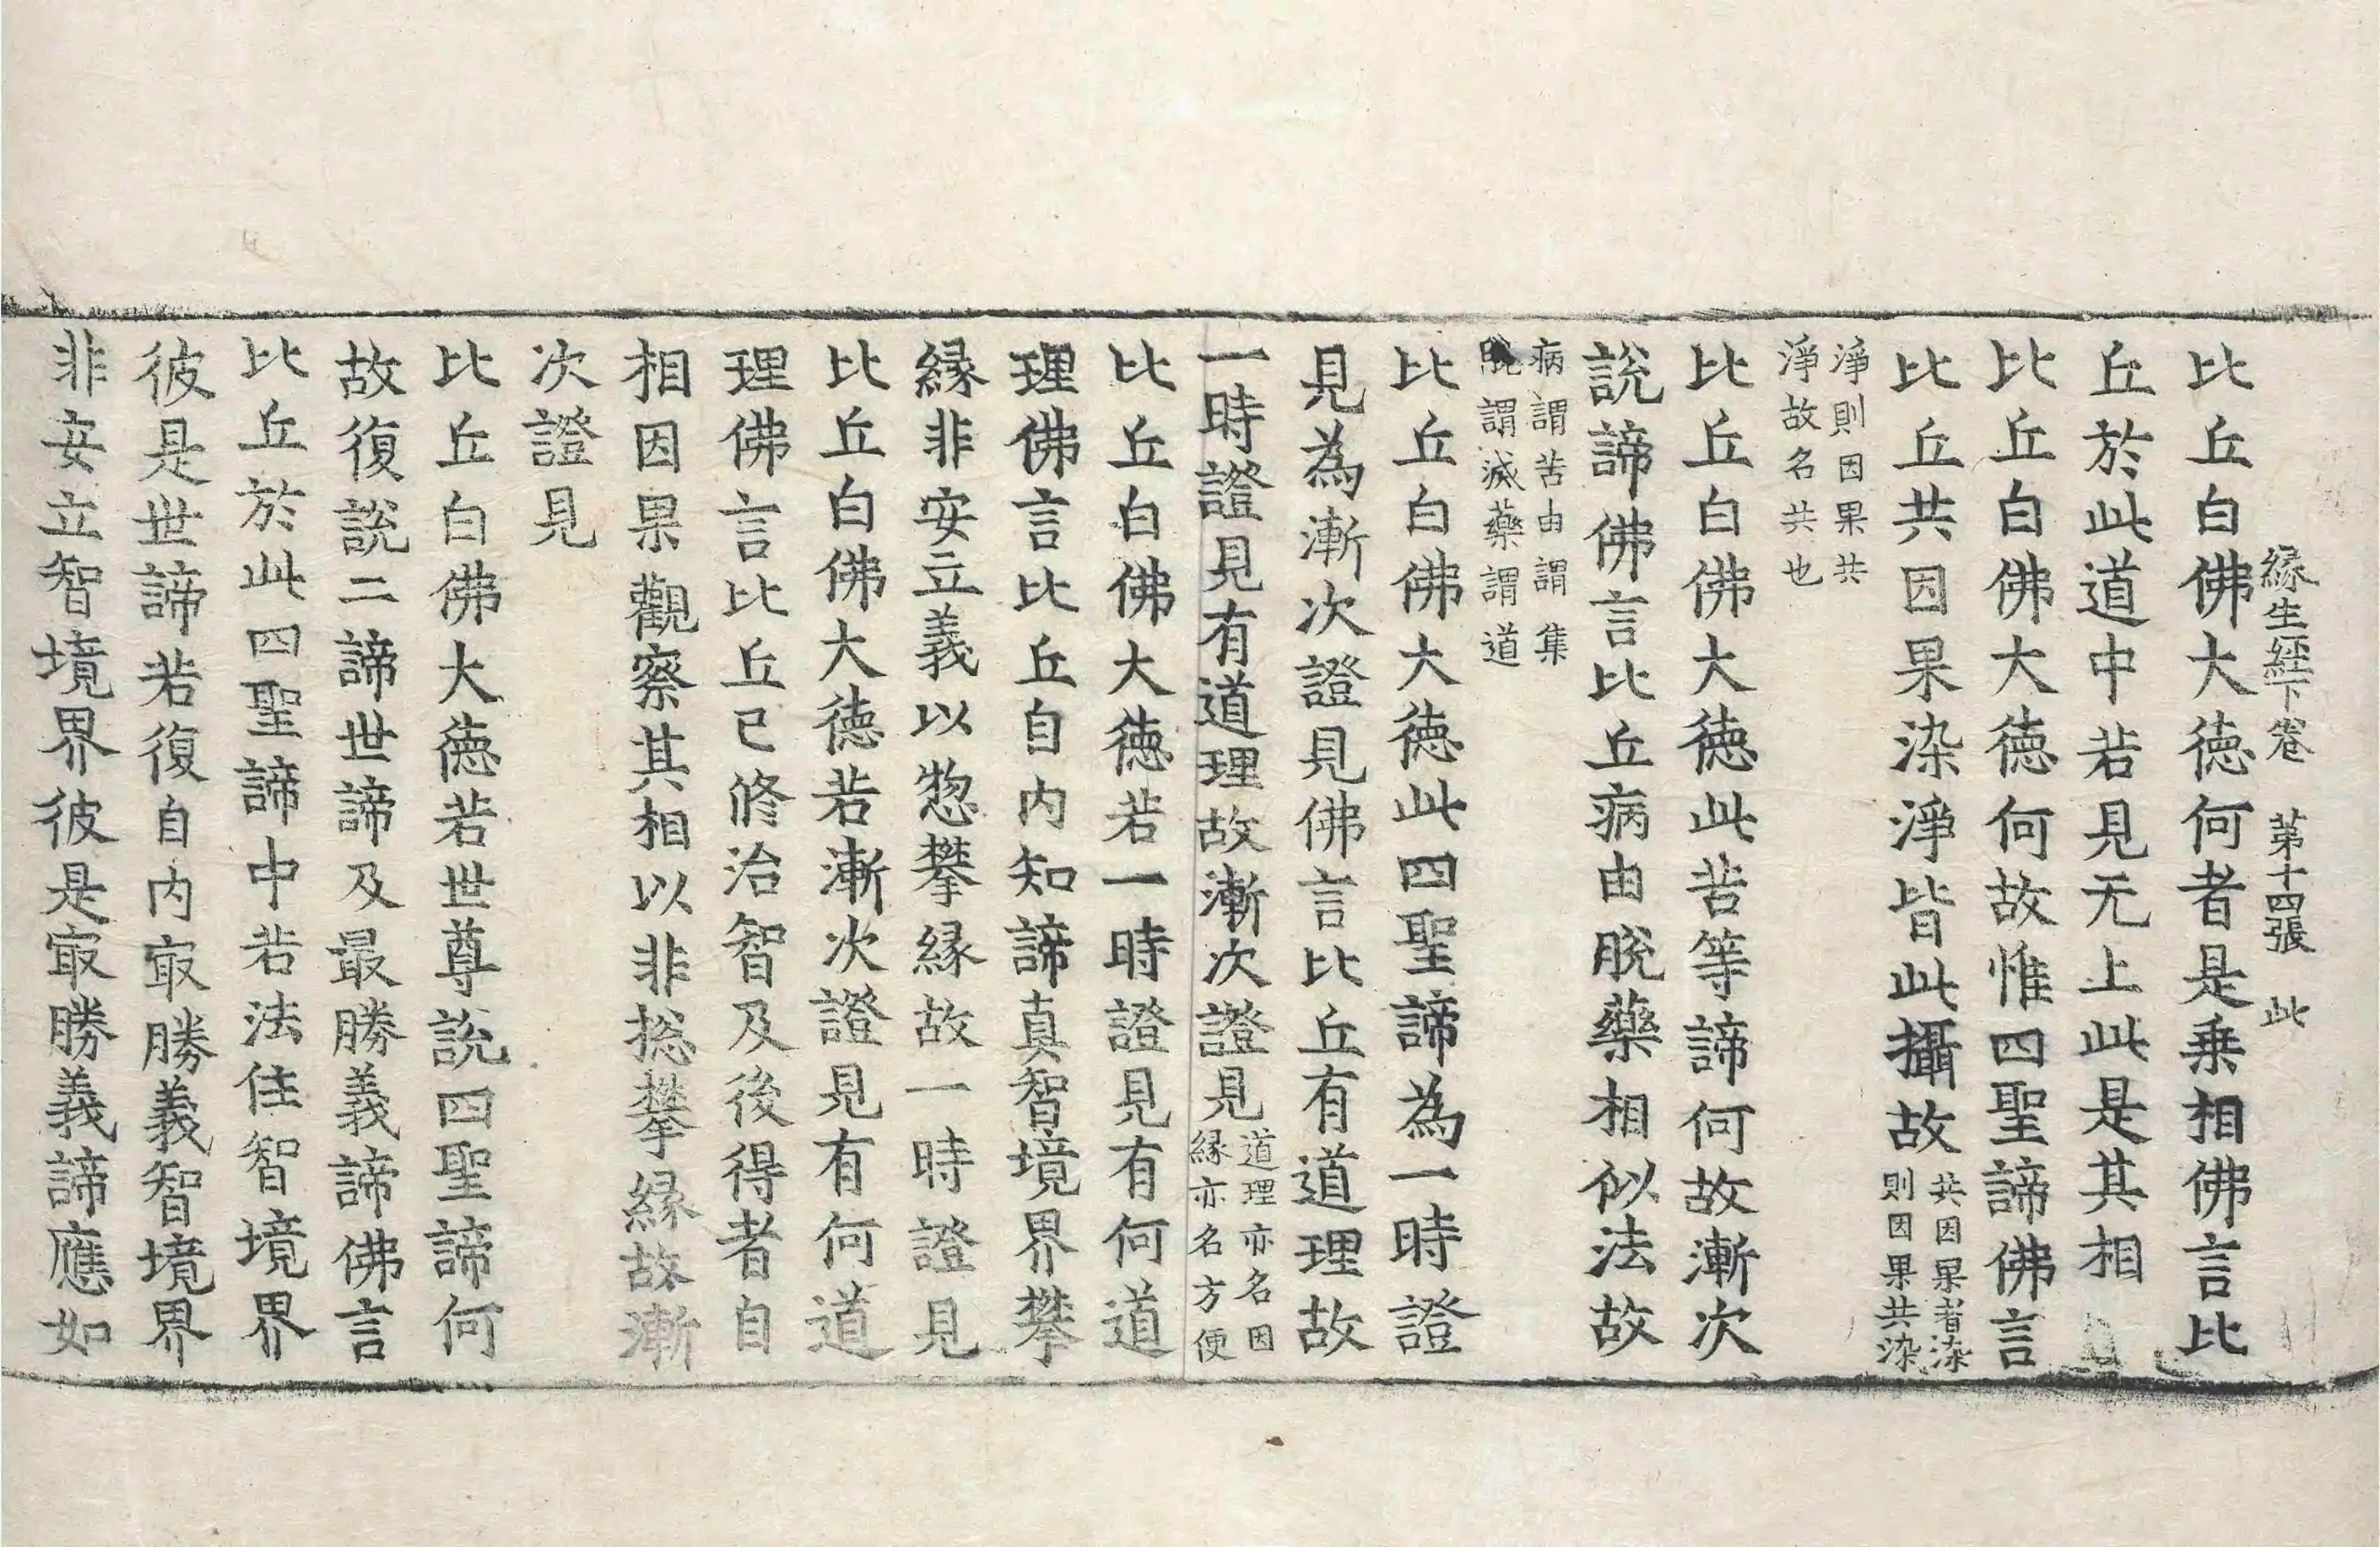 緣生經下卷 第十四張 此
比丘白佛大德何者是乗相佛言比
丘於此道中若見无上此是其相
比丘白佛大德何故惟四聖諦佛言
比丘共因果染淨皆此攝故共因果者染
則因果共染
淨則因果共
淨故名共也
比丘白佛大德此苦等諦何故漸次
說諦佛言比丘病由脫藥相似法故
病謂苦由謂集
脫謂滅藥謂道
比丘白佛大德此四聖諦為一時證
見為漸次證見佛言比丘有道理故
一時證見有道理故漸次證見道理亦名因
緣亦名方便
比丘白佛大德若一時證見有何道
理佛言比丘自内知諦真智境界攀
緣非安立義以惣攀緣故一時證見
比丘白佛大德若漸次證見有何道
理佛言比丘已修治智及後得者自
相因果觀察其相以非揔攀緣故漸
次證見
比丘白佛大德若世尊說四聖諦何
故復說二諦世諦及最勝義諦佛言
比丘於此四聖諦中若法住智境界
彼是世諦若復自内㝡勝義智境界
非安立智境界彼是㝡勝義諦應如